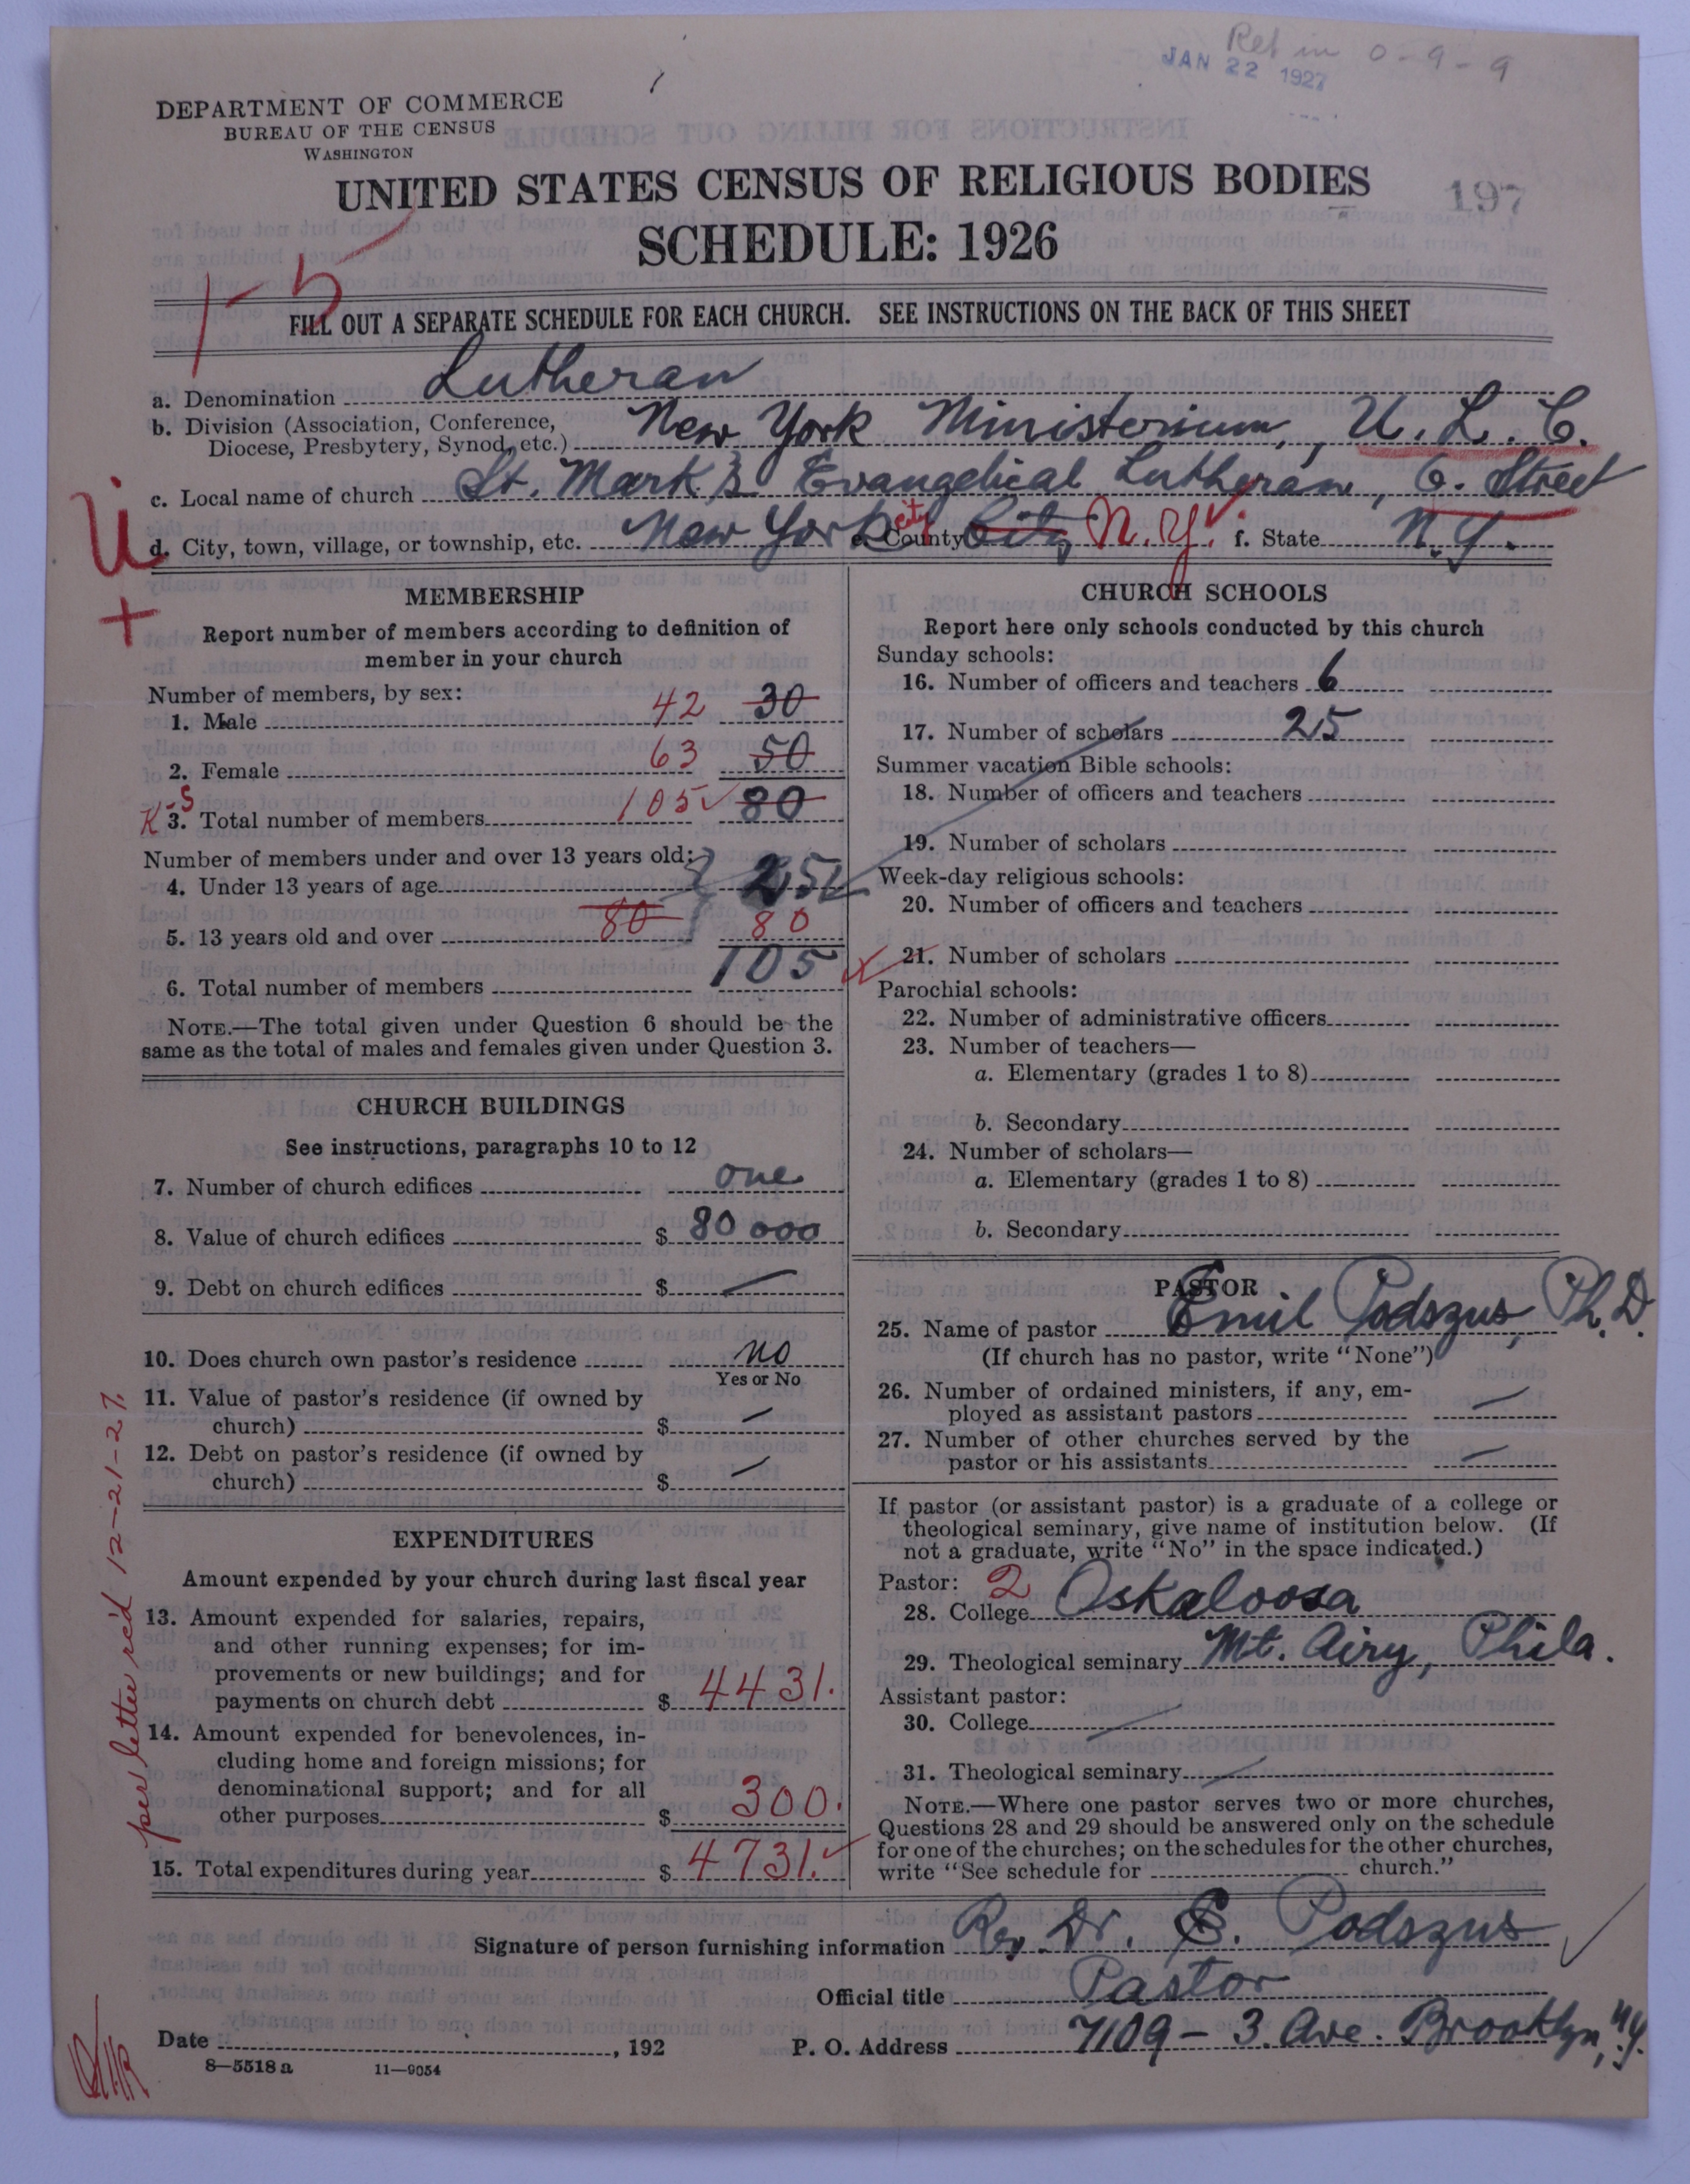 Ret in 0-9-9
JAN 22 1927
DEPARTMENT OF COMMERCE
BUREAU OF THE CENSUS
WASHINGTON
UNITED STATES CENSUS OF RELIGIOUS BODIES
197
SCHEDULE: 1926
1-5
FILL OUT A SEPARATE SCHEDULE FOR EACH CHURCH. SEE INSTRUCTIONS ON THE BACK OF THIS SHEET
a. Denomination Lutheran
b. Division (Association, Conference, Diocese, Presbytery, Synod, etc.) New York Ministerium, U. L. C.
c. Local name of church St. Mark's Evangelical Lutheran, 6. Street
d. City, town, village, or township, etc. New York City e. County City N.Y. f. State N.Y.
U
+
MEMBERSHIP
Report number of members according to definition of
member in your church
Number of members, by sex:
1. Male 42 30
2. Female 63 50
K-S 3. Total number of members 105 80
Number of members under and over 13 years old:
4. Under 13 years of age 25
5. 13 years old and over 80 80
6. Total number of members 105
NOTE.—The total given under Question 6 should be the
same as the total of males and females given under Question 3.
CHURCH BUILDINGS
See instructions, paragraphs 10 to 12
7. Number of church edifices one
8. Value of church edifices $ 80 000
9. Debt on church edifices $ —
10. Does church own pastor's residence no
Yes or No
11. Value of pastor's residence (if owned by
church) $ —
12. Debt on pastor's residence (if owned by
church) $ —
EXPENDITURES
Amount expended by your church during last fiscal year
13. Amount expended for salaries, repairs,
and other running expenses; for im-
provements or new buildings; and for
payments on church debt $ 4431.
14. Amount expended for benevolences, in-
cluding home and foreign missions; for
denominational support; and for all
other purposes $ 300.
15. Total expenditures during year $ 4731.
per letter rc'd 12-21-27.
CHURCH SCHOOLS
Report here only schools conducted by this church
Sunday schools:
16. Number of officers and teachers 6
17. Number of scholars 25
Summer vacation Bible schools:
18. Number of officers and teachers
19. Number of scholars
Week-day religious schools:
20. Number of officers and teachers
21. Number of scholars
Parochial schools:
22. Number of administrative officers
23. Number of teachers—
a. Elementary (grades 1 to 8)
b. Secondary
24. Number of scholars—
a. Elementary (grades 1 to 8)
b. Secondary
PASTOR
25. Name of pastor Emil Podszus, Ph. D.
(If church has no pastor, write "None")
26. Number of ordained ministers, if any, em-
ployed as assistant pastors —
27. Number of other churches served by the
pastor or his assistants —
If pastor (or assistant pastor) is a graduate of a college or
theological seminary, give name of institution below. (If
not a graduate, write "No" in the space indicated.)
Pastor: 2
28. College Oskaloosa
29. Theological seminary Mt. Airy, Phila.
Assistant pastor:
30. College —
31. Theological seminary —
NOTE.—Where one pastor serves two or more churches,
Questions 28 and 29 should be answered only on the schedule
for one of the churches; on the schedules for the other churches,
write "See schedule for church."
Signature of person furnishing information Rev. Dr. E. Podszus
Official title Pastor
Date , 192
P. O. Address 7109 - 3. Ave. Brooklyn, N.Y.
8—5518 a 11—9054